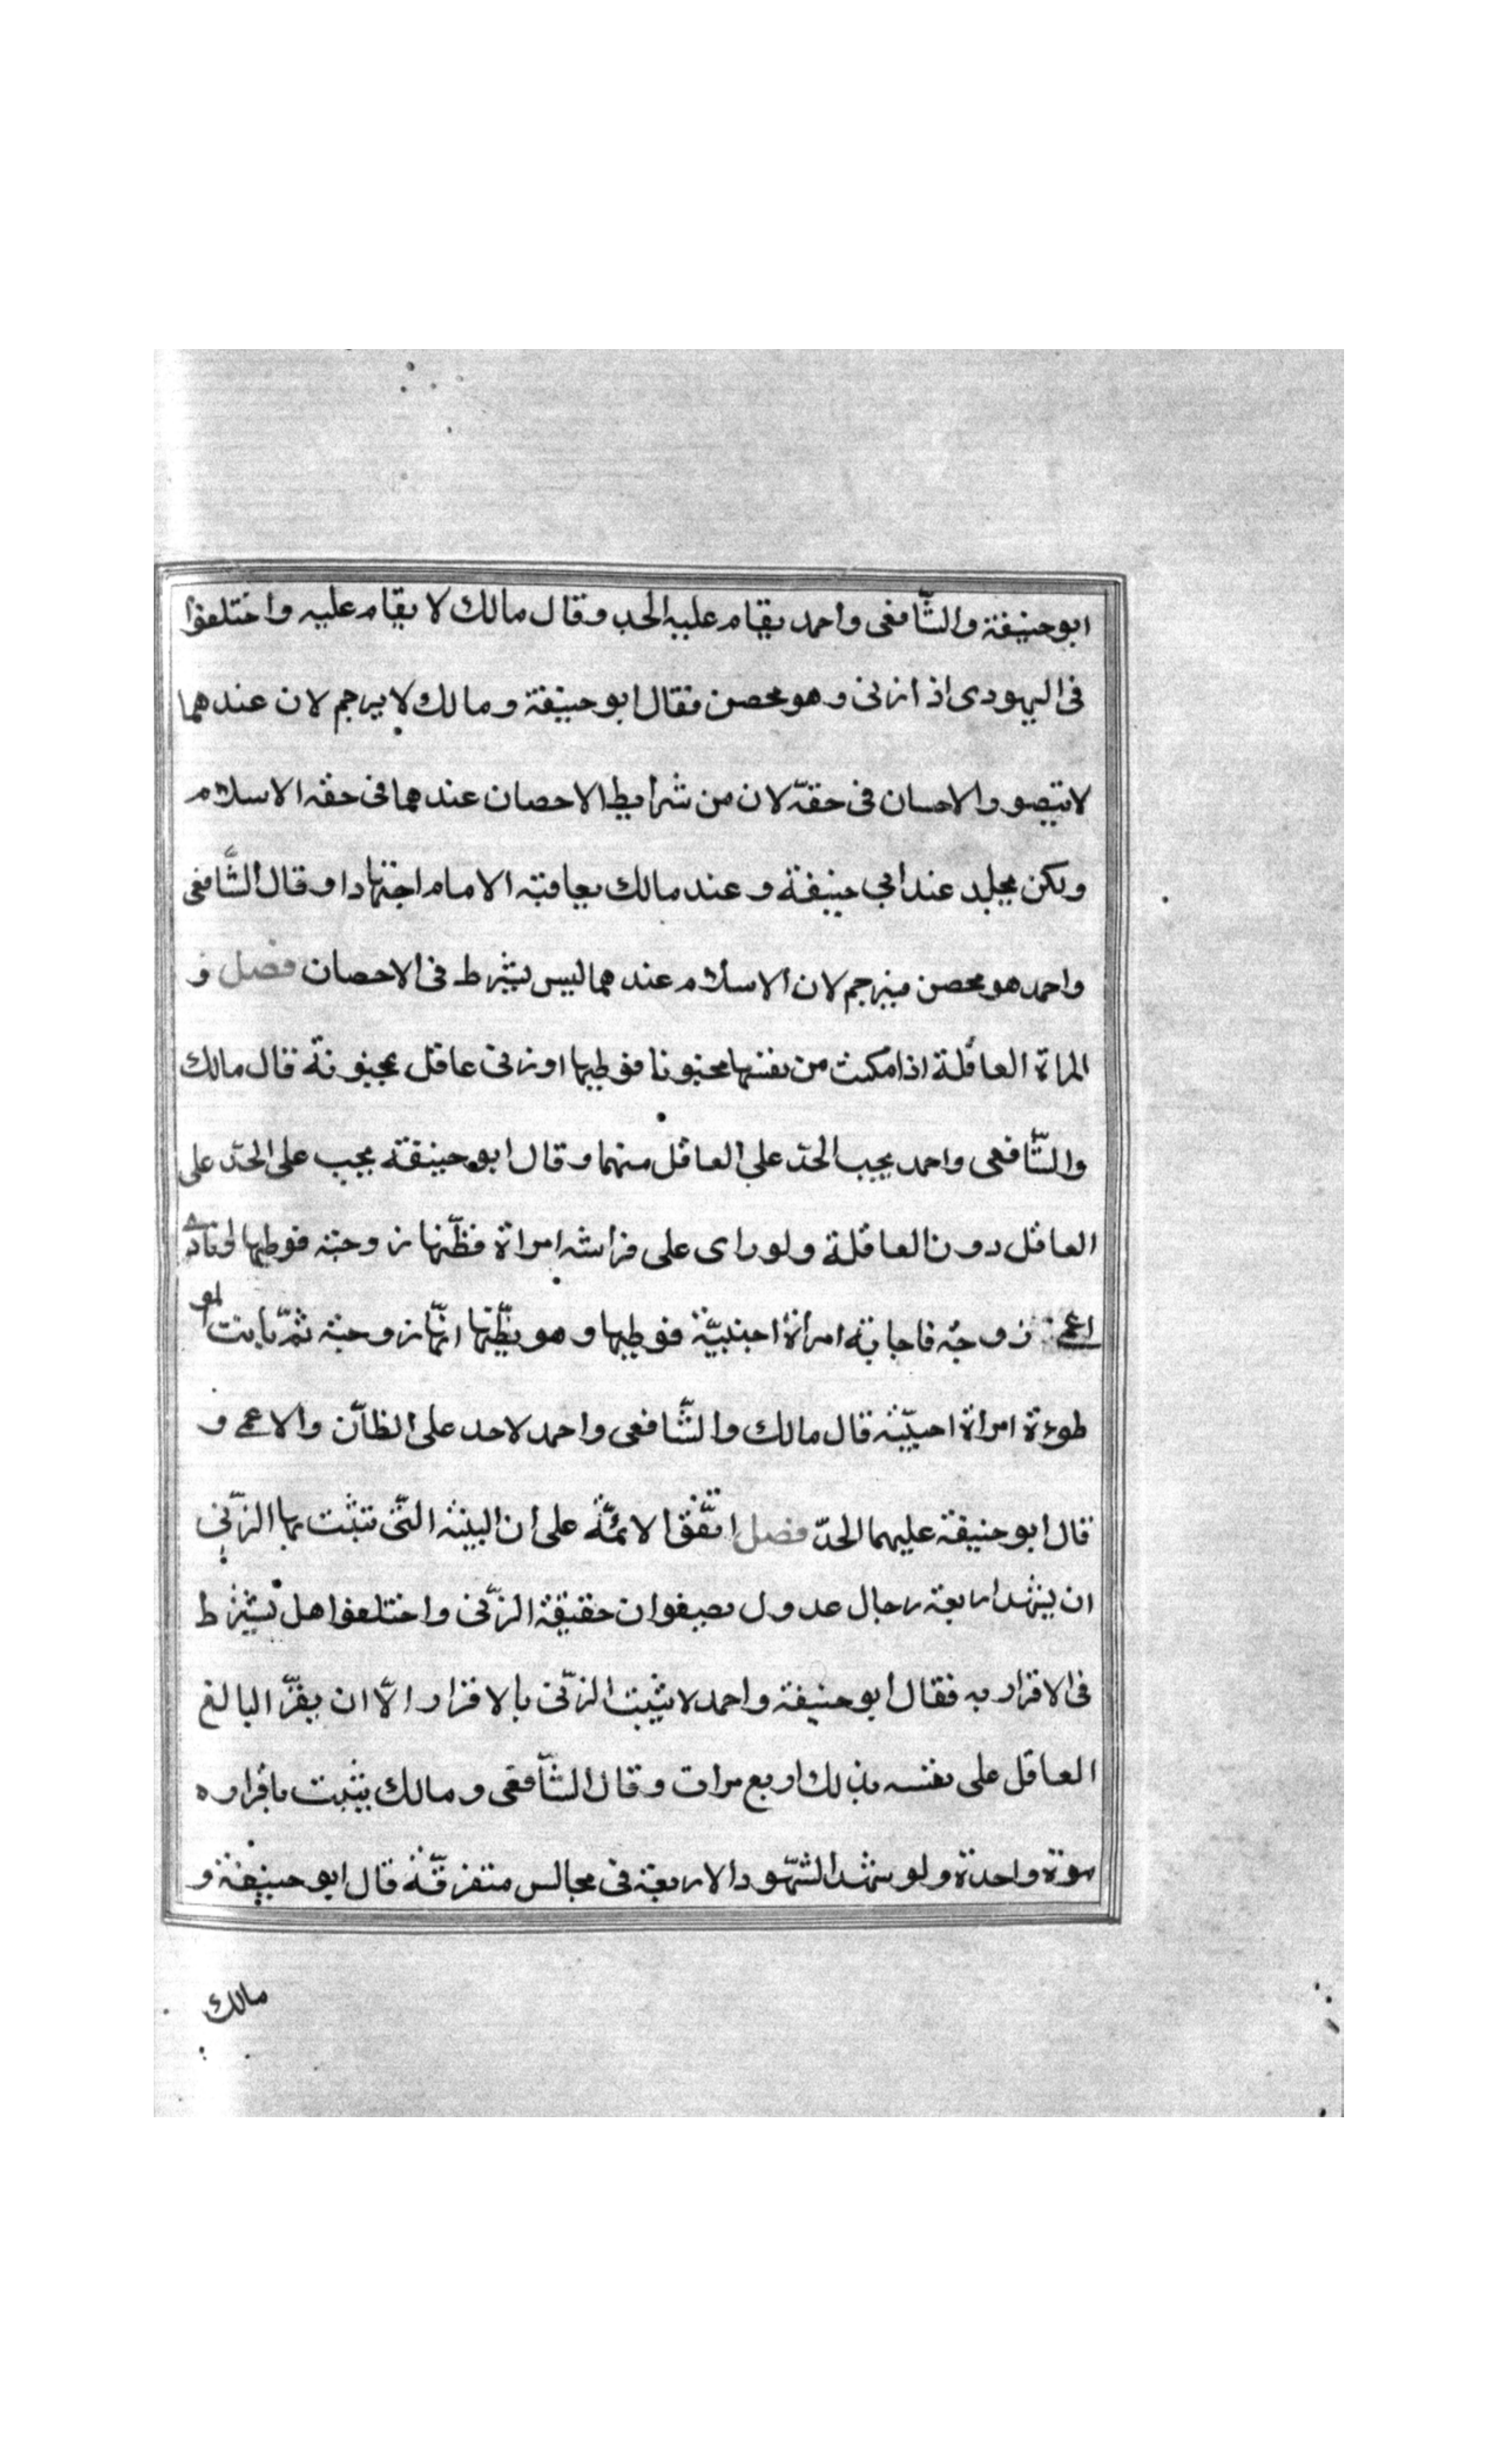 ابو حنيفة والشّافعى واحمد يقام عليه الحد وقال مالك لا يقام عليه واختلفوا
فى اليهودى اذا زنى وهو محصن فقال ابو حنيفة ومالك لا يرجم لان عندهما
لا يتصور الاحسان فى حقّه لان من شرايط الاحصان عندهما فى حقه الاسلام
ولكن يجلد عند ابى حنيفة وعند مالك يعاقبه الامام اجتهادا وقال الشّافعى
واحمد هو محصن فيرجم لان الاسلام عندهما ليس بشرط فى الاحصان فصل و
المراة العاقلة اذا مكنت من نفسها مجنونا فوطيها او زنى عاقل بمجنونة قال مالك
والشّافعى واحمد يجب الحدّ على العاقل منهما وقال ابو حنيفة يجب على الحدّ على
العاقل دون العاقلة ولو راى على فراشه امراة فظنّها زوجته فوطيها او نادى
اعمى زوجته فاجابته امراة اجنبيّة فوطيها وهو يظنّها انّها زوجته ثمّ بانت المو
طوءة امراة اجنبيّة قال مالك والشّافعى واحمد لا حد على الظانّ والاعمى و
قال ابو حنيفة عليهما الحدّ فصل اتّفق الائمّة على ان البينة الّتى تثبت بها الزّنى
ان يشهد اربعة رجال عدول يصفوان حقيقة الزّنى واختلفوا هل يشترط
فى الاقرار به فقال ابو حنيفة واحمد لا يثبت الزّنى بالاقرار الّا ان يقرّ البالغ
العاقل على نفسه بذلك اربع مرات وقال الشّافعى ومالك يثبت باقراره
مرة واحدة ولو شهد الشّهود الاربعة فى مجالس متفرقّة قال ابو حنيفة و
مالك